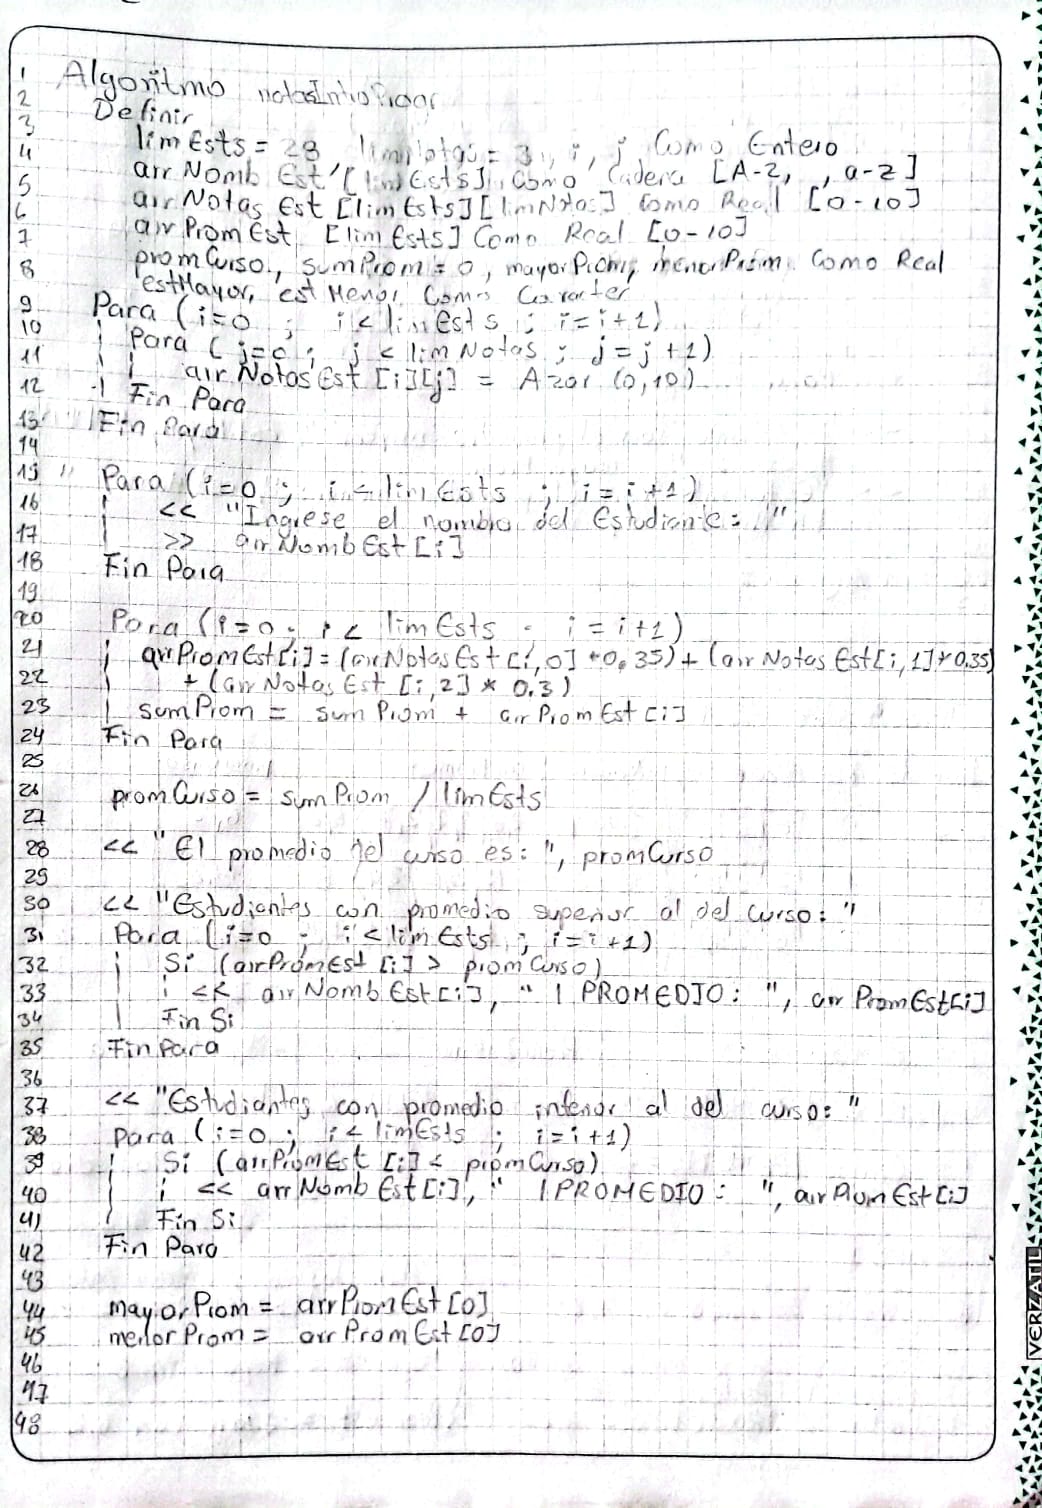 1 Algoritmo notasIntroProgr
2 Definir
3 limEsts = 28 limNotas = 3, i, j Como Entero
4 arrNombEst [limEsts] Como Cadena [A-Z, , a-z]
5 arrNotasEst [limEsts][limNotas] Como Real [0-10]
6 arrPromEst [limEsts] Como Real [0-10]
7 promCurso, sumProm = 0, mayorProm, menorProm Como Real
8 estMayor, estMenor Como Caracter
9 Para (i=0 ; i < limEsts ; i=i+1)
10 Para (j=0 ; j < limNotas ; j=j+1)
11 arrNotasEst [i][j] = Azar (0,10)
12 Fin Para
13 Fin Para
14
15 Para (i=0 ; i < limEsts ; i=i+1)
16 << "Ingrese el nombre del Estudiante: "
17 >> arrNombEst[i]
18 Fin Para
19
20 Para (i=0 ; i < limEsts ; i = i+1)
21 arrPromEst[i] = (arrNotasEst[i,0] *0.35) + (arrNotasEst[i,1] * 0.35)
22 + (arrNotasEst [i,2] * 0.3)
23 sumProm = sumProm + arrPromEst[i]
24 Fin Para
25
26 promCurso = sumProm / limEsts
27
28 << "El promedio del curso es: ", promCurso
29
30 << "Estudiantes con promedio superior al del curso: "
31 Para (i=0 ; i < limEsts ; i=i+1)
32 Si (arrPromEst [i] > promCurso)
33 << arrNombEst[i], " | PROMEDIO: ", arrPromEst[i]
34 Fin Si
35 Fin Para
36
37 << "Estudiantes con promedio inferior al del curso: "
38 Para (i=0 ; i < limEsts ; i=i+1)
39 Si (arrPromEst [i] < promCurso)
40 << arrNombEst[i], " | PROMEDIO: ", arrPromEst[i]
41 Fin Si
42 Fin Para
43
44 mayorProm = arrPromEst[0]
45 menorProm = arrPromEst[0]
46
47
48
VERZATIL